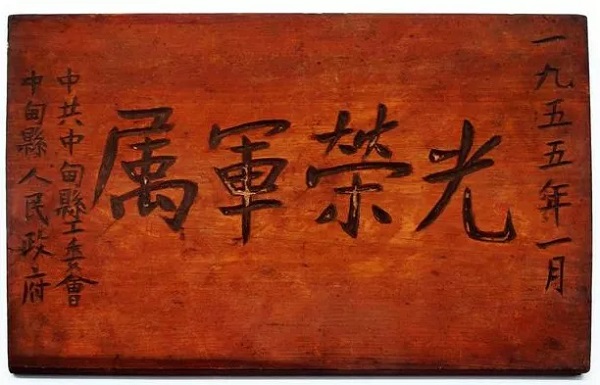 一九五五年一月
光榮軍属
中共中甸縣工委會
中甸縣人民政府